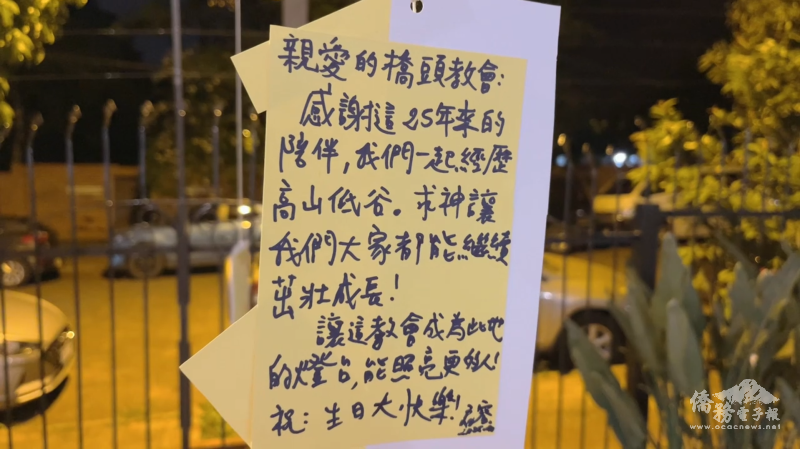 親愛的橋頭教會:
感謝這25年來的
陪伴,我們一起經歷
高山低谷。求神讓
我們大家都能繼續
茁壯成長!
讓這教會成為此地
的燈台,能照亮更多人!
祝:生日大快樂!
僑務電子報
www.ocacnews.net